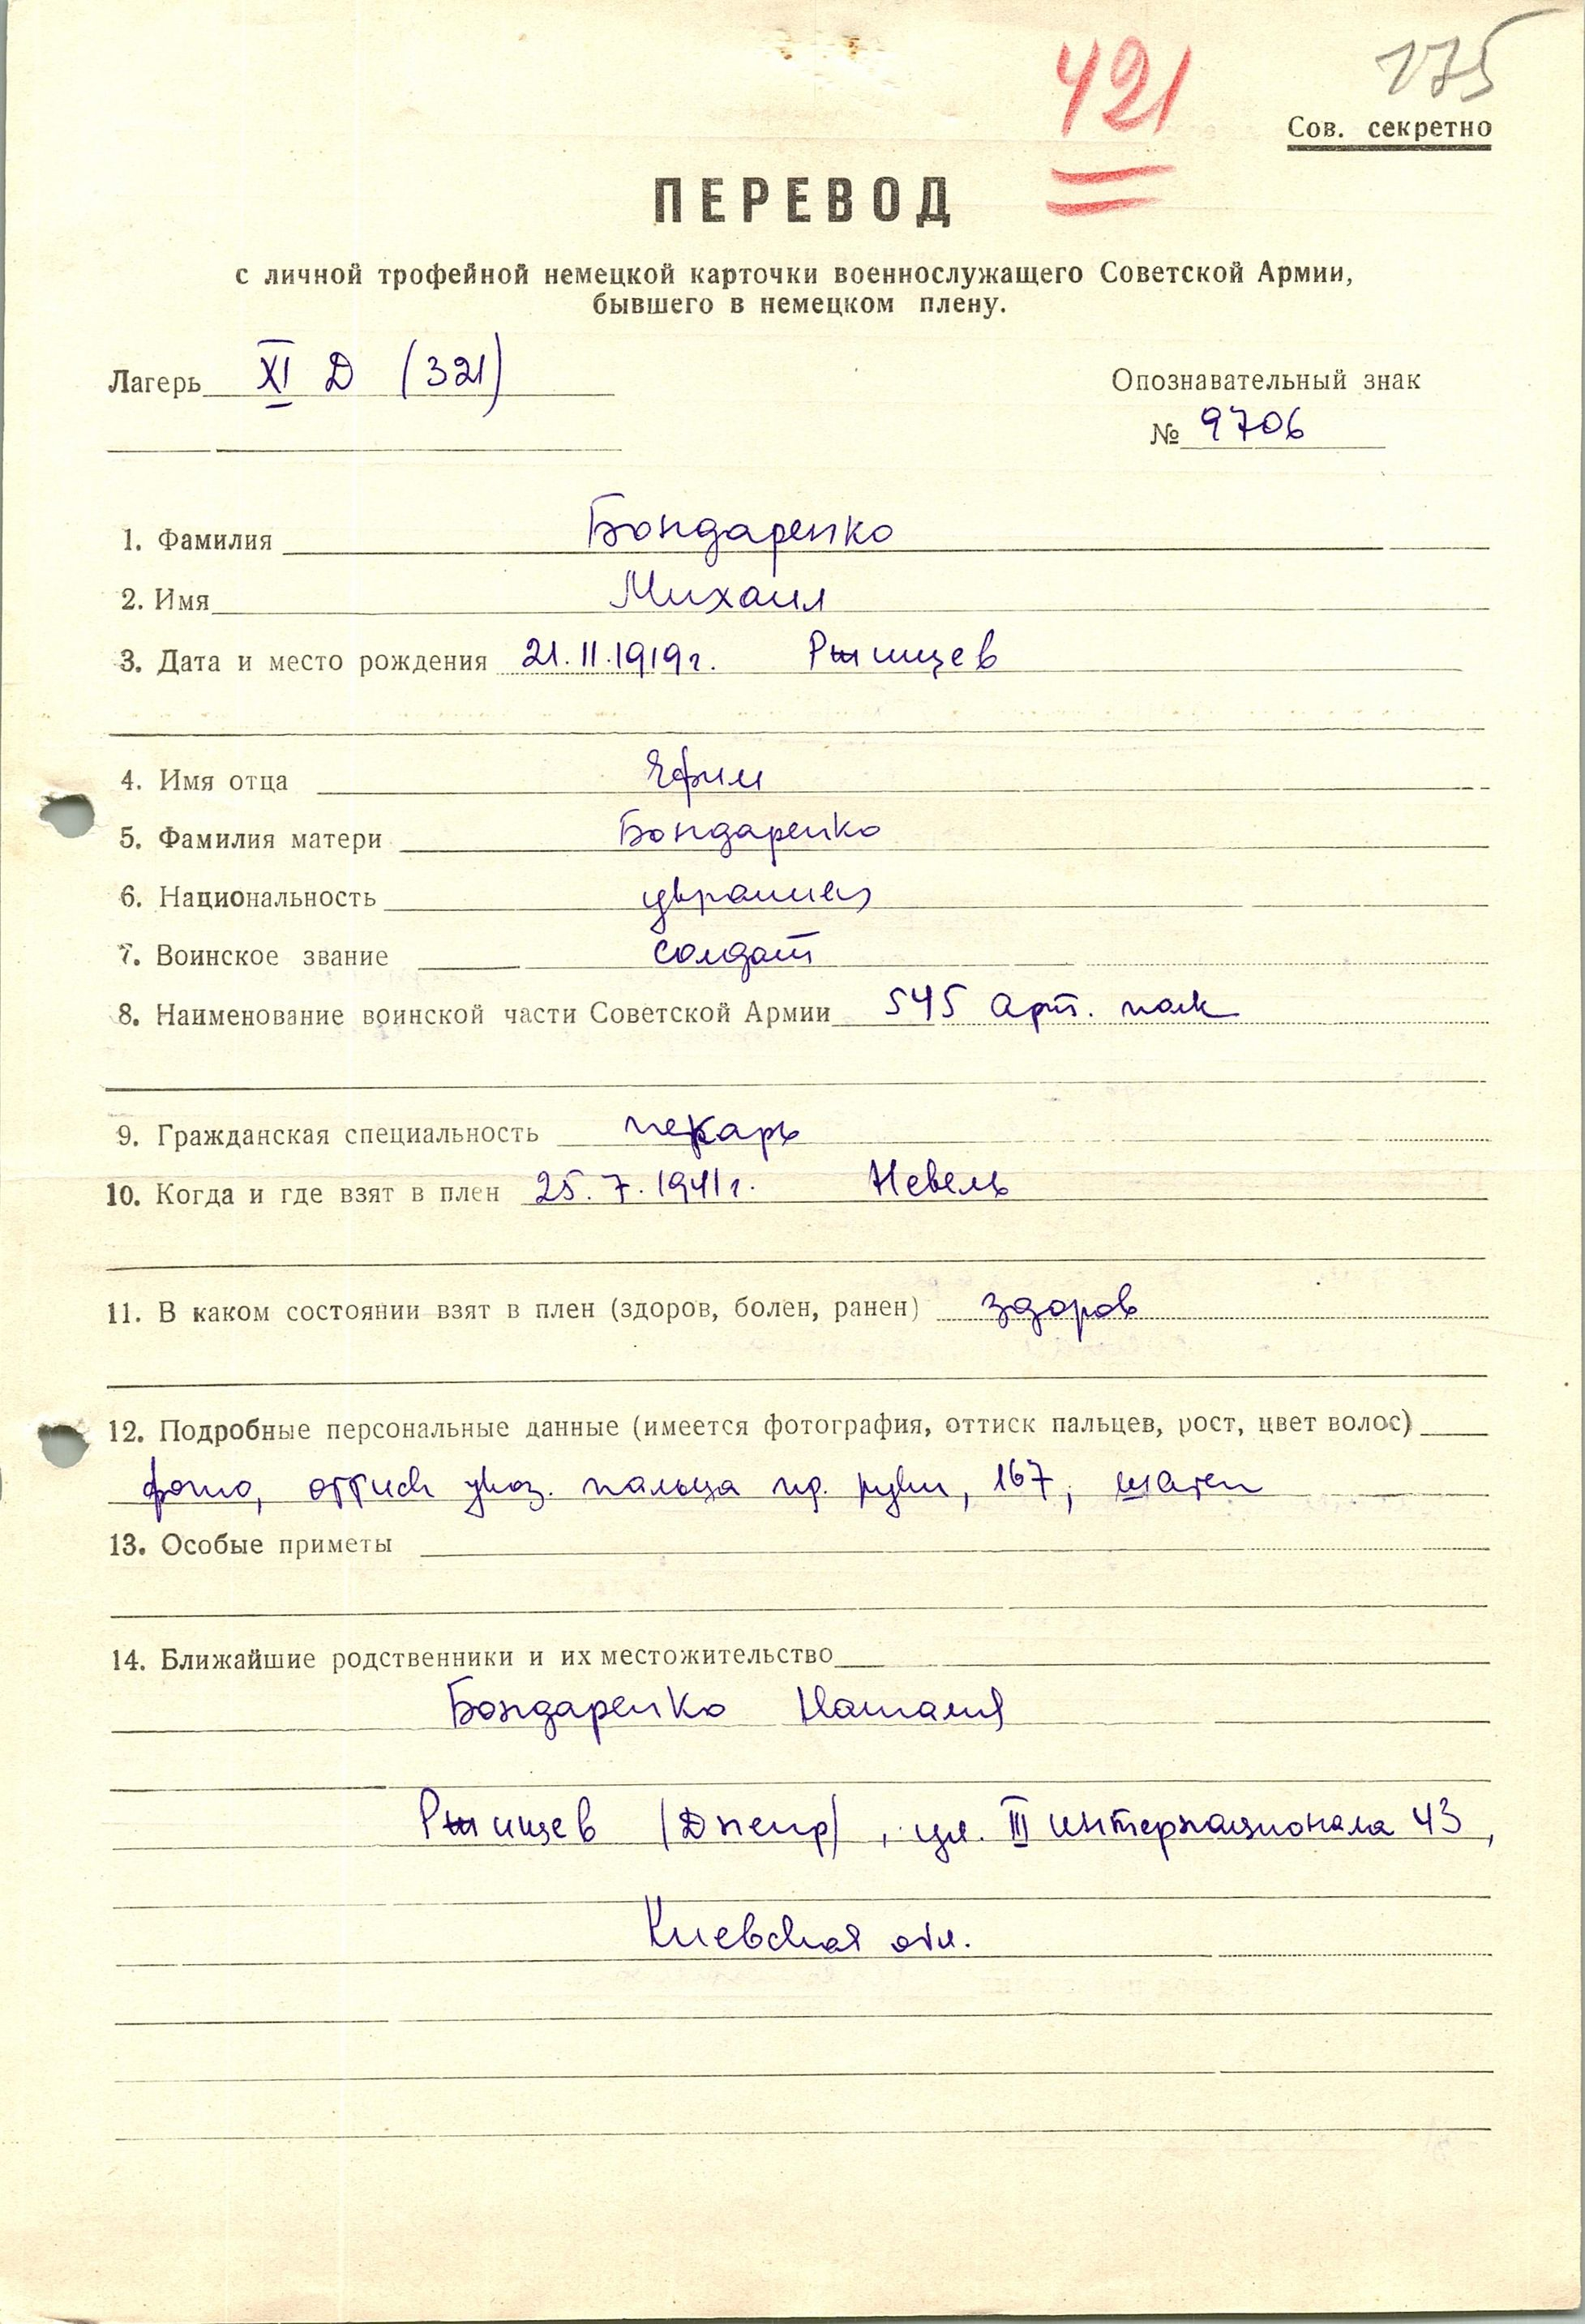 421
175
Сов. секретно
ПЕРЕВОД
с личной трофейной немецкой карточки военнослужащего Советской Армии,
бывшего в немецком плену.
Лагерь XI Д (321)
Опознавательный знак
№ 9706
1. Фамилия Бондаренко
2. Имя Михаил
3. Дата и место рождения 21.11.1919г.
4. Имя отца Ефим
5. Фамилия матери Бондаренко
6. Национальность украинец
7. Воинское звание солдат
8. Наименование воинской части Советской Армии 545 арт. полк
9. Гражданская специальность пекарь
10. Когда и где взят в плен 25.7.1941г. Невель
11. В каком состоянии взят в плен (здоров, болен, ранен) здоров
12. Подробные персональные данные (имеется фотография, оттиск пальцев, рост, цвет волос)
фото, оттиск указ. пальца пр. руки, 167, шатен
13. Особые приметы
14. Ближайшие родственники и их местожительство
Бондаренко Наталия
(Днепр), ул. III интернационала 43,
Киевская обл.